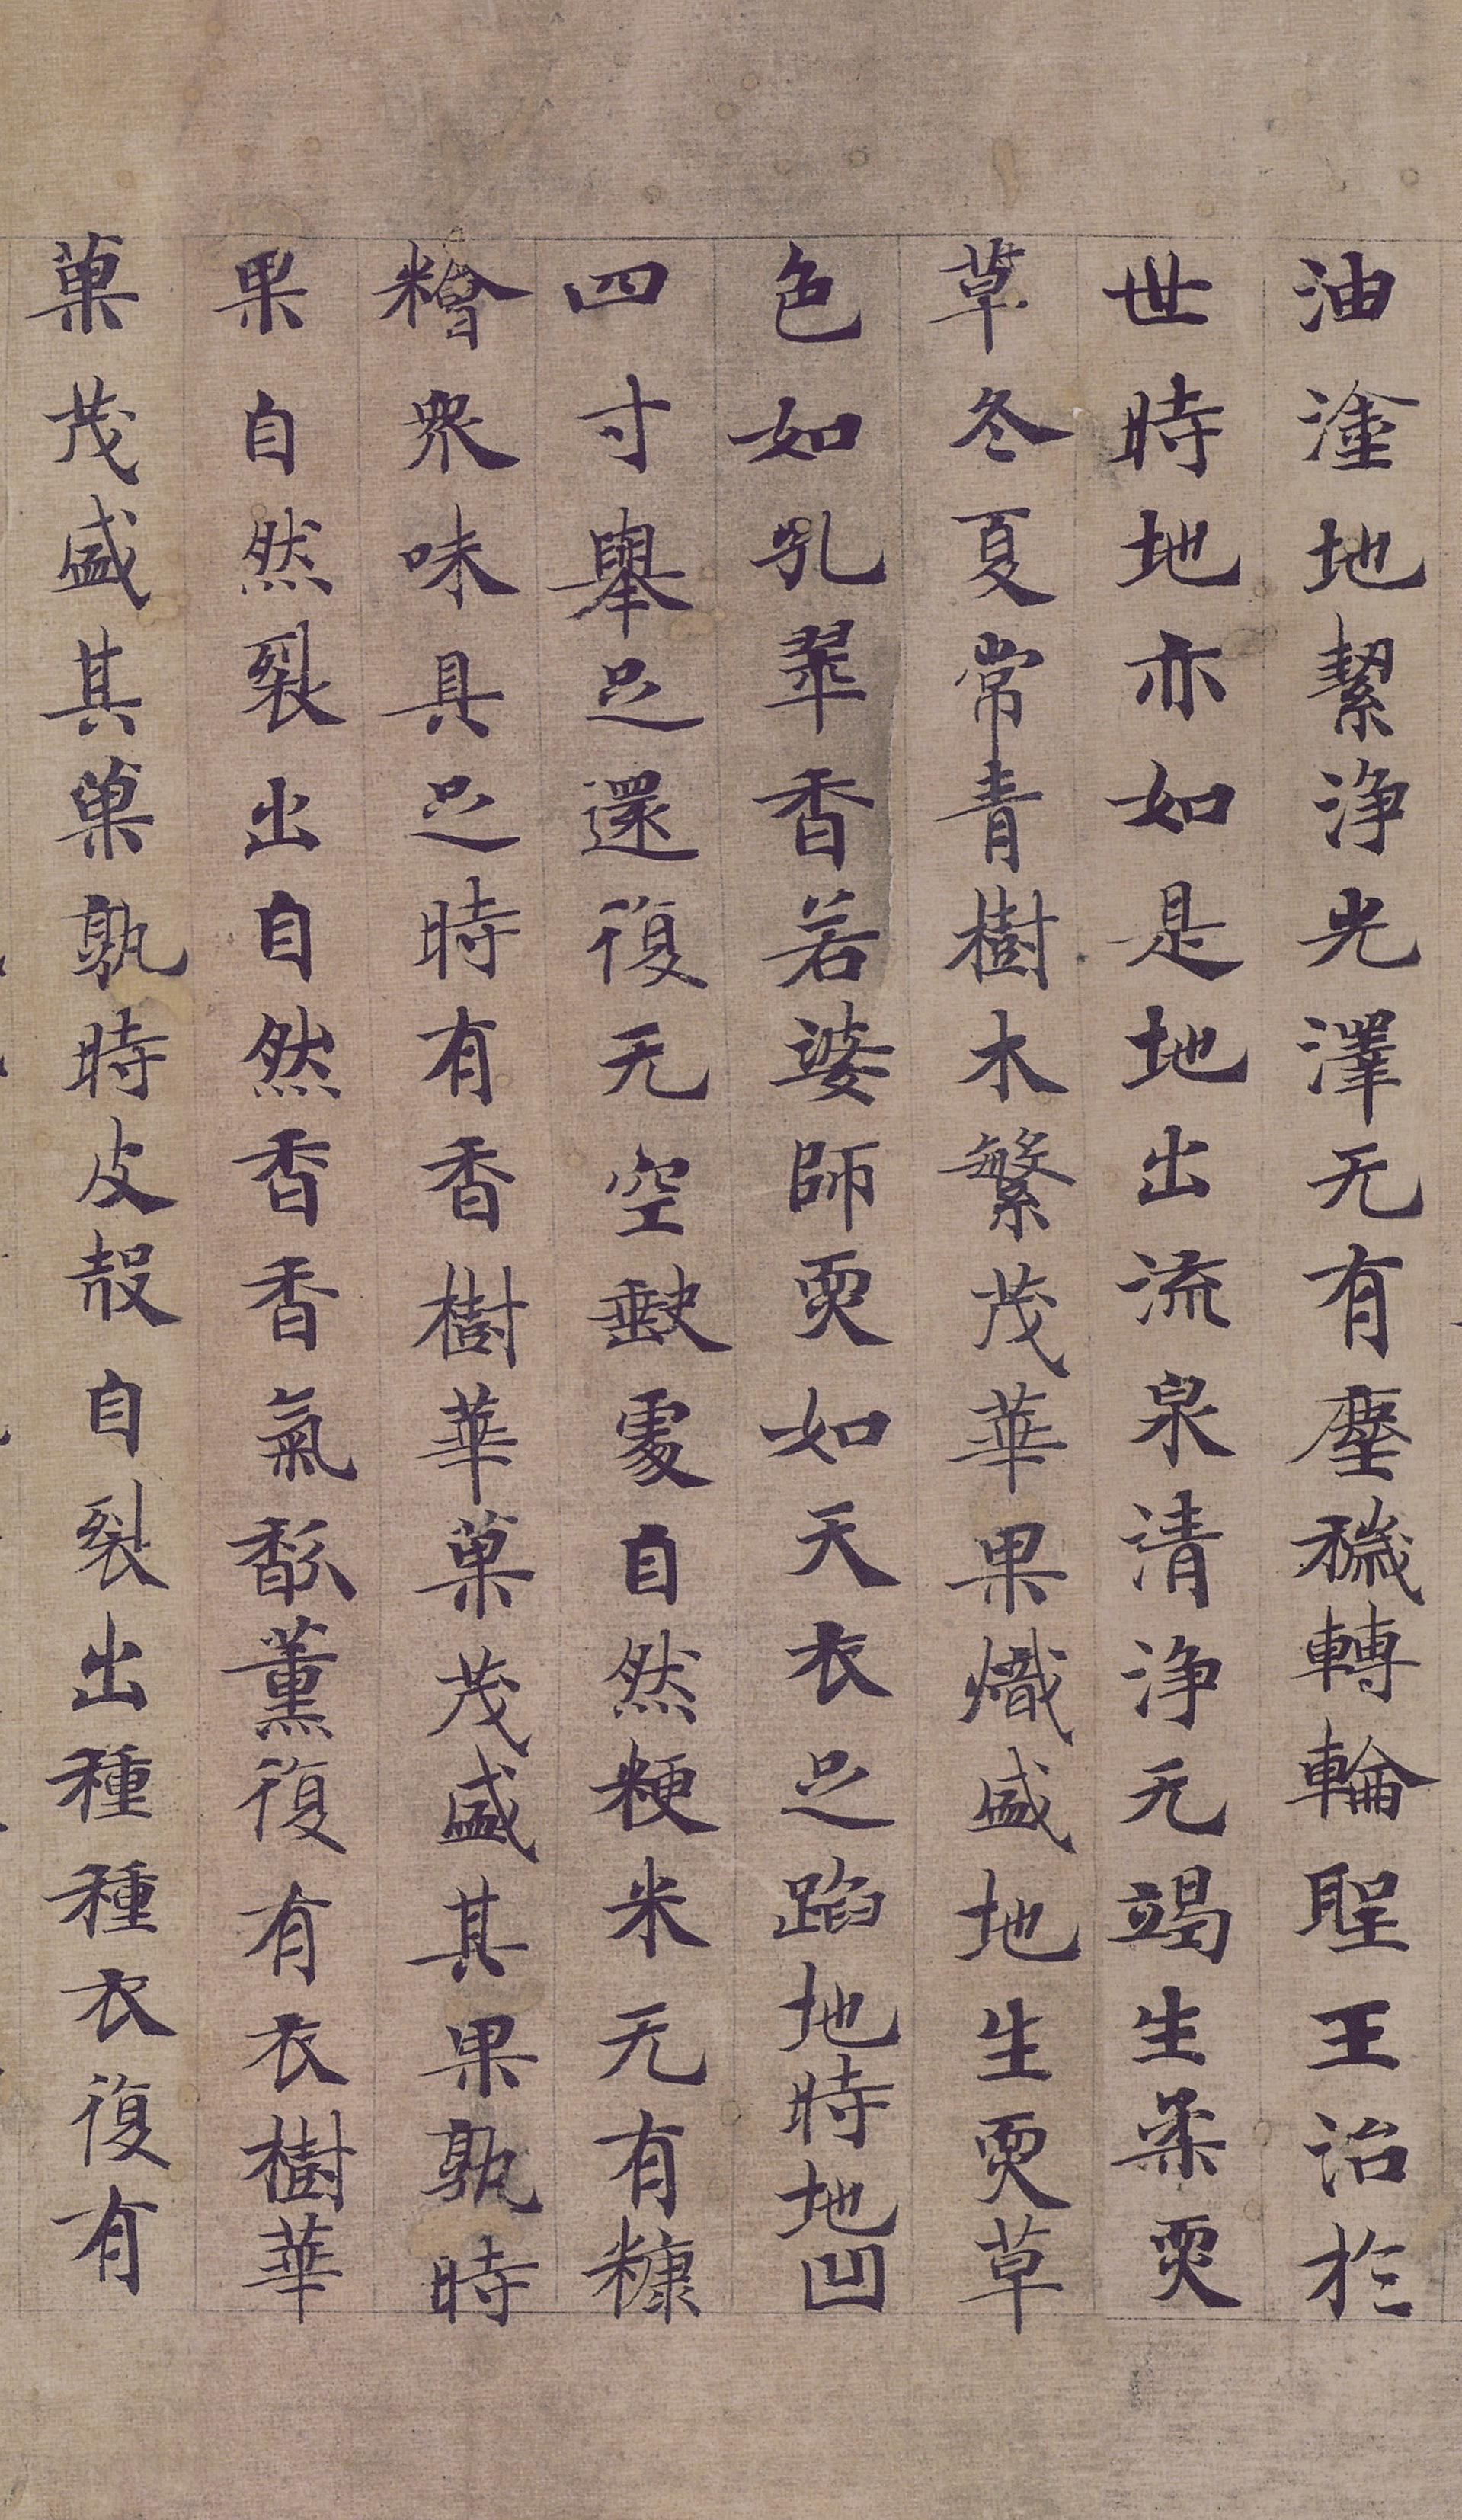 油塗地絜淨光澤无有塵穢轉輪聖王治於
世時地亦如是地出流泉清淨无竭生柔耎
草冬夏常青樹木繁茂華果熾盛地生耎草
色如孔翠香若婆師耎如天衣足蹈地時地凹
四寸舉足還復无空缺處自然粳米无有糠
糩眾味具足時有香樹華菓茂盛其果孰時
果自然裂出自然香香氣馥薰復有衣樹華
菓茂盛其菓孰時皮殼自裂出種種衣復有